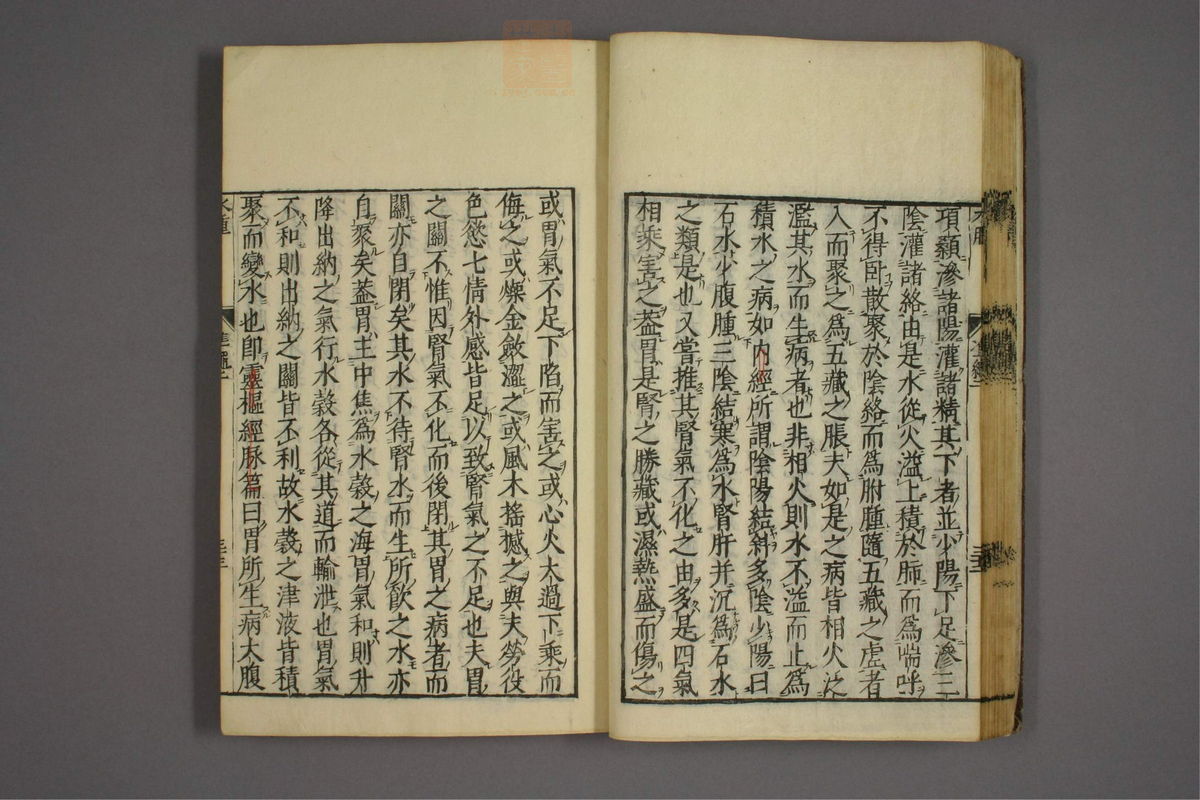 項顙滲諸陽灌諸精其下者並少陽下足滲三
陰灌諸絡由是水從火溢上積於肺而為喘呼
不得臥散聚於陰絡而為胕腫隨五藏之虛者
入而聚之為五藏之脹夫如是之病皆相火泛
濫其水而生病者也非相火則水不溢而止為
積水之病如内經所謂陰陽結斜多陰少陽曰
石水少腹腫三陰結寒為水腎肝并沉為石水
之類是也又當推其腎氣不化之由多是四氣
相乘害之蓋胃是腎之勝藏或濕熱盛而傷之
或胃氣不足下陷而害之或心火太過下乘而
侮之或燥金斂澀之或風木搖撼之與夫勞役
色慾七情外感皆足以致腎氣之不足也夫胃
之關不惟因腎氣不化而後閉其胃之病者而
關亦自閉矣其水不待腎水而生所飲之水亦
自聚矣蓋胃主中焦為水穀之海胃氣和則升
降出納之氣行水穀各從其道而輸泄也胃氣
不和則出納之關皆不利故水穀之津液皆積
聚而變水也卽靈樞經脉篇曰胃所生病大腹